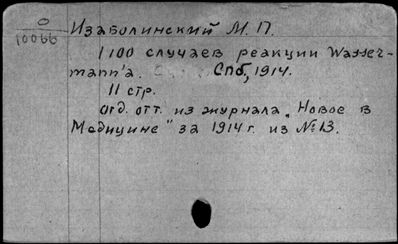 0
10066
Изаболинский М. П.
1100 случаев реакции Wasser-
mann'а. Спб, 1914.
11 стр.
отд. отт. из журнала „Новое в
Медицине" за 1914 г. из № 13.